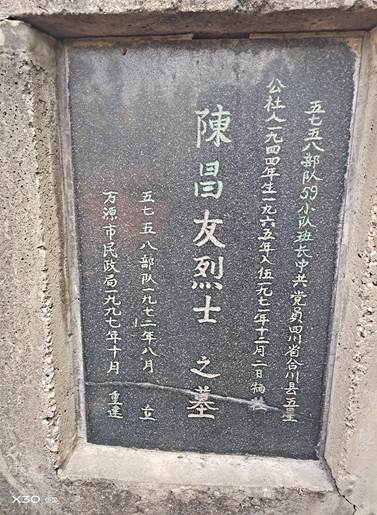 五七五八部队59小队班长中共党员四川省合川县五星
公社人一九四四年生一九六五年入伍一九七一年十二月二日牺牲
陳昌友烈士之墓
五七五八部队一九七二年八月 立
万源市民政局一九九七年十月 重建
X30